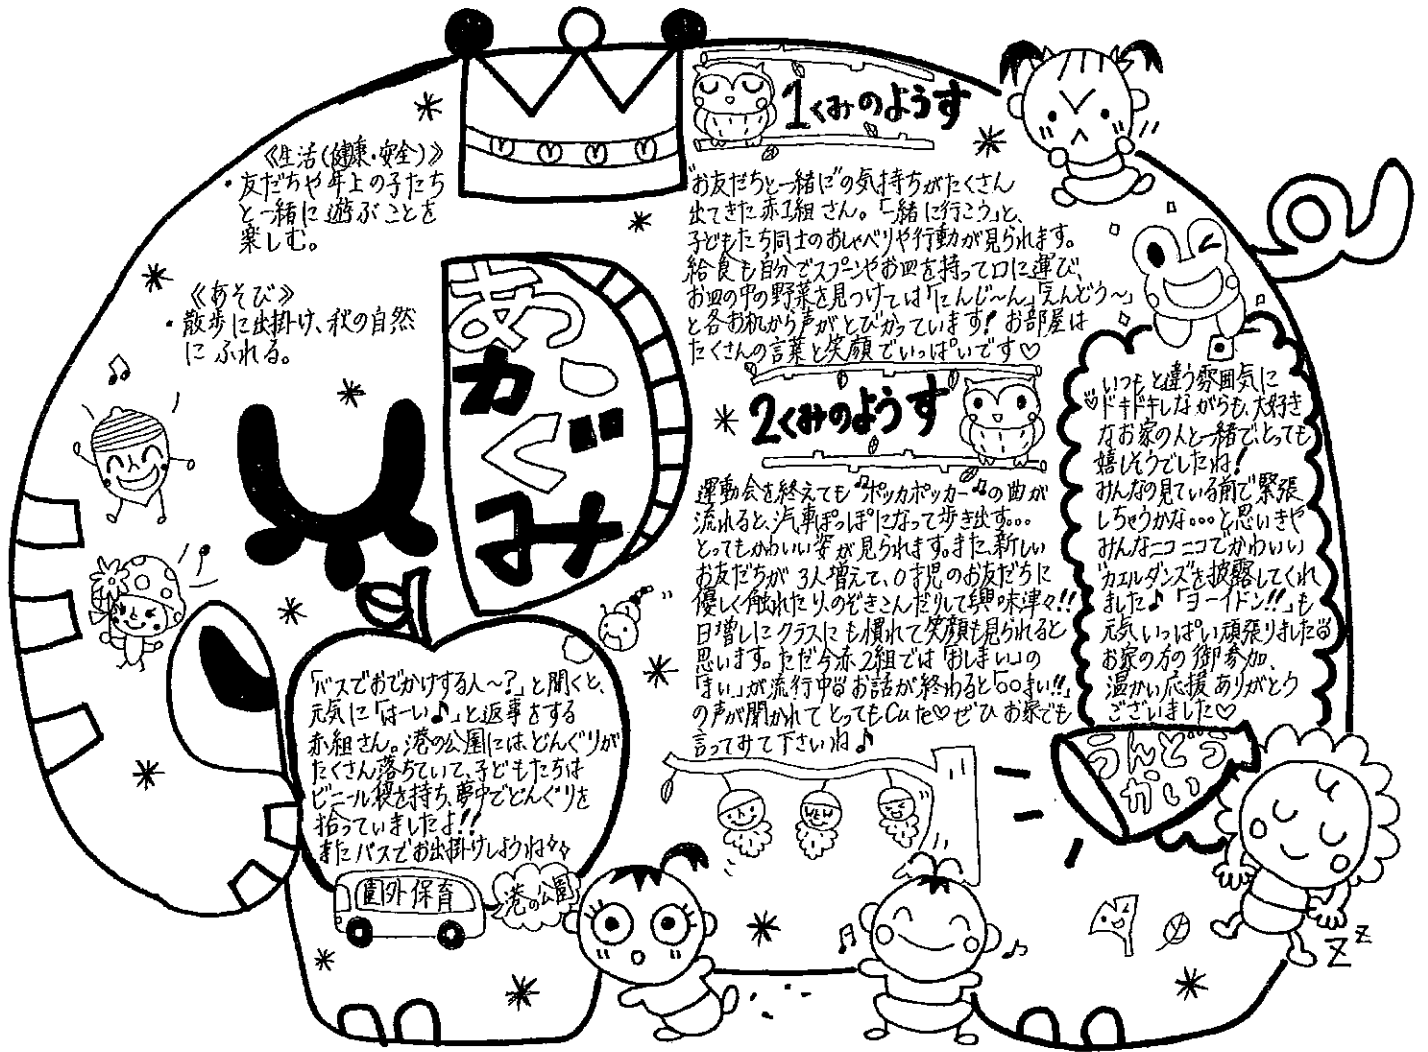 あかぐみ
《生活(健康・安全)》
・友だちや年上の子たち
と一緒に遊ぶことを
楽しむ。
《あそび》
・散歩に出掛け、秋の自然
にふれる。
1くみのようす
"お友だちと一緒に"の気持ちがたくさん
出てきた赤1組さん。「一緒に行こう」と、
子どもたち同士のおしゃべりや行動が見られます。
給食も自分でスプーンやお皿を持って口に運び、
お皿の中の野菜を見つけては「にんじ〜ん」「えんどう〜」
と各お机から声がとびかっています!お部屋は
たくさんの言葉と笑顔でいっぱいです♡
2くみのようす
運動会を終えても♫ポッカポッカー♫の曲が
流れると、汽車ぽっぽになって歩き出す…
とってもかわいい姿が見られます。また、新しい
お友だちが3人増えて、0才児のお友だちに
優しく触れたり、のぞきこんだりして興味津々!!
日増しにクラスにも慣れて笑顔も見られると
思います。ただ今赤2組では「おしまい」の
「まい」が流行中 お話が終わると「○○まい!!」
の声が聞かれてとってもCute♡ぜひお家でも
言ってみて下さいね♪
いつもと違う雰囲気に
♡ドキドキしながらも、大好き
なお家の人と一緒で、とっても
嬉しそうでしたね!
みんなの見ている前で緊張
しちゃうかな…と思いきや
みんなニコニコでかわいい
"カエルダンス"を披露してくれ
ました♪「ヨーイドン!!」も
元気いっぱい頑張りました
お家の方の御参加、
温かい応援ありがとう
ございました♡
うんどう
かい
「バスでおでかけする人〜?」と聞くと、
元気に「はーい♪」と返事をする
赤組さん。港の公園には、どんぐりが
たくさん落ちていて、子どもたちは
ビニール袋を持ち、夢中でどんぐりを
拾っていましたよ!!
またバスでお出掛けしようね
園外保育
港の公園
ZZ